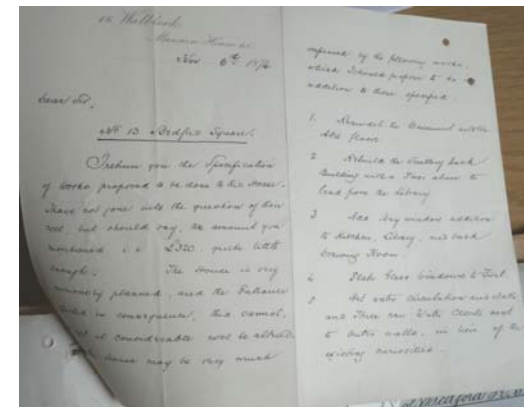 66 Walbrook
Mansion House EC
Nov 6th 1874
Dear Sir,
No 13 Bedford Square.
I return you the Specification
of Works proposed to be done to this House.
I have not gone into the question of their
cost, but should say, the amount you
mentioned, i.e. £320, quite little
enough. The House is very
curiously planned, and the Entrance
in consequence, this cannot,
at considerable cost be altered.
house may be very much
improved by the following works,
which I should propose to do in
addition to those specified.
1. Remodel the Basement
floors
2 Rebuild the back
Building with a
lead from the Library
3 Add bay window addition
to Kitchen, Library, and back
Room
4 Plate Glass Windows to Front.
5 Hot water circulation and Bath
and three new Water Closets next
to outer walls, in lieu of the
existing curiosities.